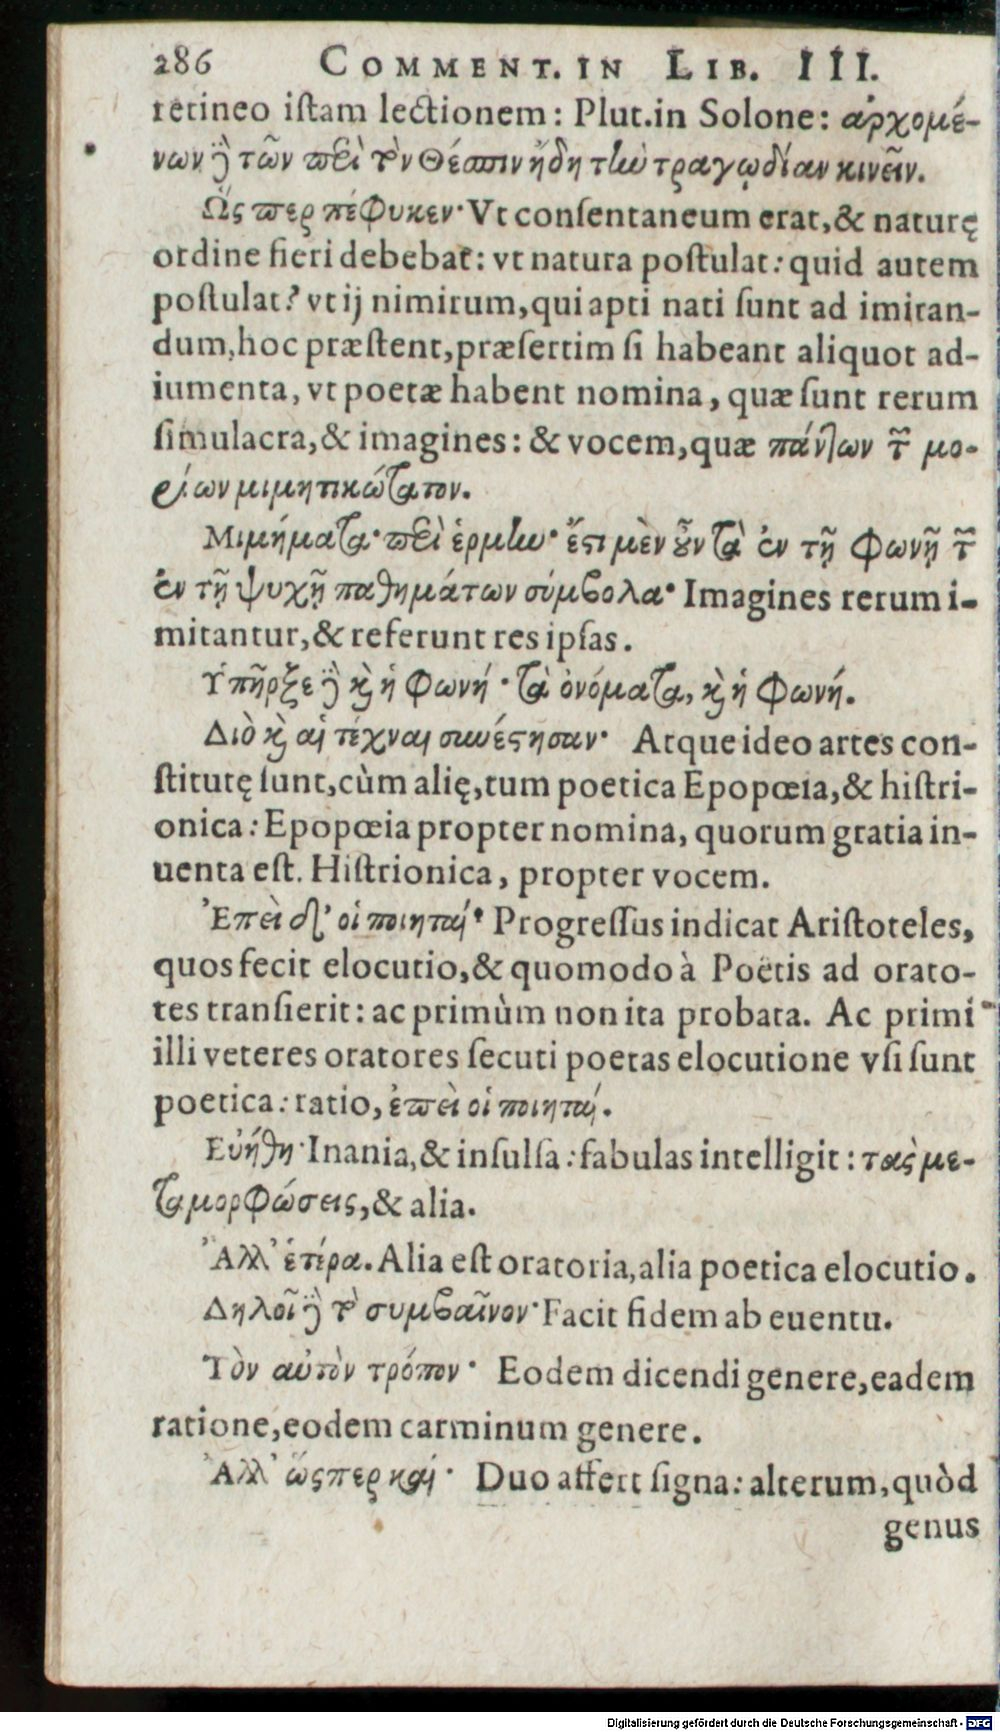 286 COMMENT. IN LIB. III.
retineo iſtam lectionem: Plut. in Solone: ἀρχομέ-
νων ἢ τῶν περὶ τὸν Θέσπιν ἤδη τὴν τραγῳδίαν κινεῖν.
Ὥς περ πέφυκεν· Vt conſentaneum erat, & naturę
ordine fieri debebat: vt natura poſtulat: quid autem
poſtulat? vt ij nimirum, qui apti nati ſunt ad imitan-
dum, hoc præſtent, præſertim ſi habeant aliquot ad-
iumenta, vt poetæ habent nomina, quæ ſunt rerum
ſimulacra, & imagines: & vocem, quæ πάντων τῶν μο-
ρίων μιμητικώτατον.
Μιμήματα· περὶ ἑρμην· ἔστι μὲν οὖν τὰ ἐν τῇ φωνῇ τῶν
ἐν τῇ ψυχῇ παθημάτων σύμβολα· Imagines rerum i-
mitantur, & referunt res ipſas.
Ὑπῆρξε δὲ καὶ ἡ φωνή· τὰ ὀνόματα, καὶ ἡ φωνή.
Διὸ καὶ αἱ τέχναι συνέστησαν· Atque ideo artes con-
ſtitutę ſunt, cùm alię, tum poetica Epopœia, & hiſtri-
onica: Epopœia propter nomina, quorum gratia in-
uenta eſt. Hiſtrionica, propter vocem.
Ἐπεὶ δ' οἱ ποιηταί· Progreſſus indicat Ariſtoteles,
quos fecit elocutio, & quomodo à Poëtis ad orato-
res tranſierit: ac primùm non ita probata. Ac primi
illi veteres oratores ſecuti poetas elocutione vſi ſunt
poetica: ratio, ἐπεὶ οἱ ποιηταί.
Εὐήθη· Inania, & inſulſa: fabulas intelligit: τὰς με-
ταμορφώσεις, & alia.
Ἀλλ' ἑτέρα. Alia eſt oratoria, alia poetica elocutio.
Δηλοῖ δὲ τὸ συμβαῖνον· Facit fidem ab euentu.
Τὸν αὐτὸν τρόπον· Eodem dicendi genere, eadem
ratione, eodem carminum genere.
Ἀλλ' ὥςπερ καί· Duo affert ſigna: alterum, quòd
genus
Digitalisierung gefördert durch die Deutsche Forschungsgemeinschaft - DFG